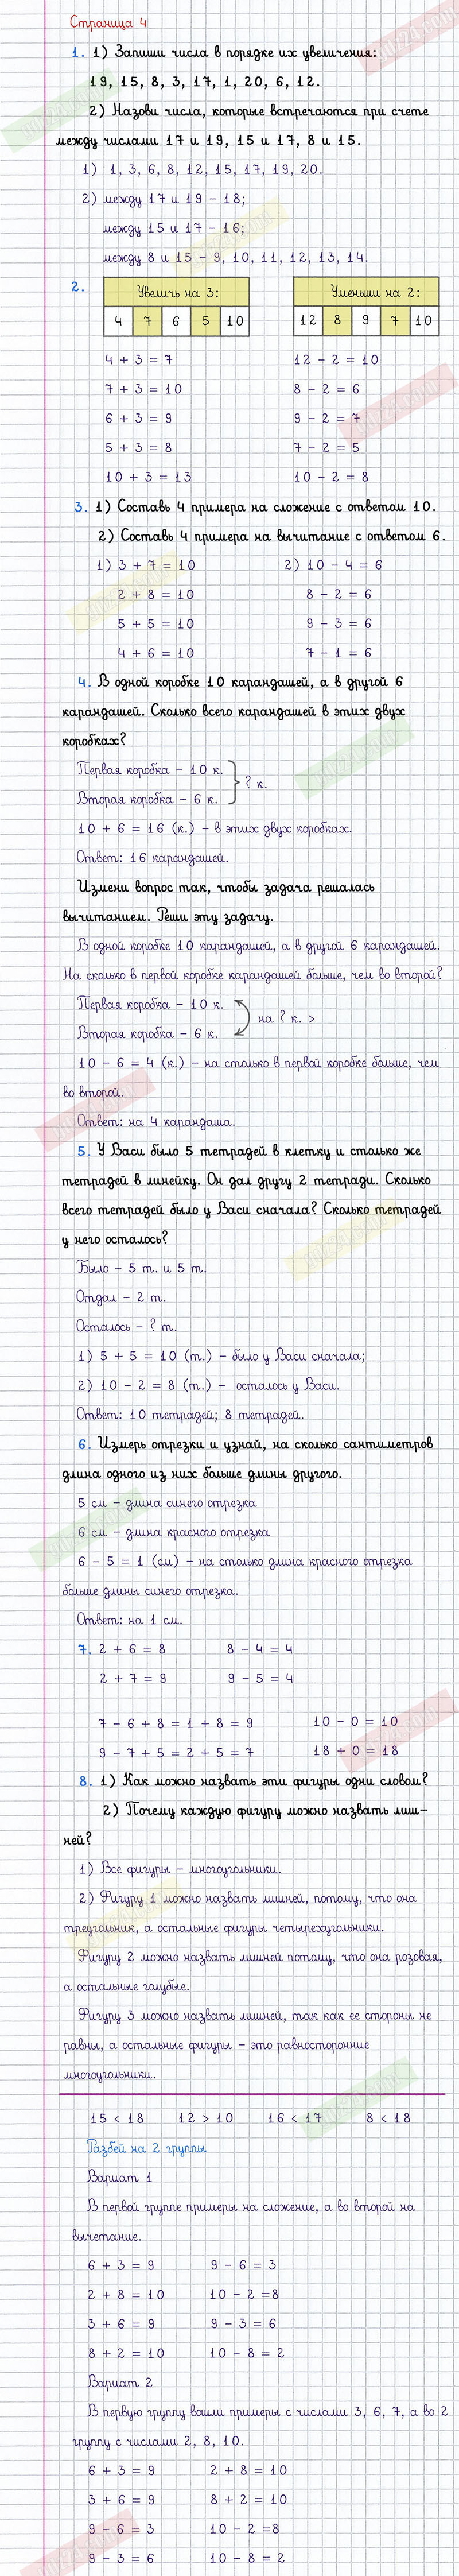 Страница 4
1. 1) Запиши числа в порядке их увеличения:
19, 15, 8, 3, 17, 1, 20, 6, 12.
2) Назови числа, которые встречаются при счете
между числами 17 и 19, 15 и 17, 8 и 15.
1) 1, 3, 6, 8, 12, 15, 17, 19, 20.
2) между 17 и 19 – 18;
между 15 и 17 – 16;
между 8 и 15 – 9, 10, 11, 12, 13, 14.
2. Увеличь на 3: Уменьши на 2:
4 7 6 5 10 12 8 9 7 10
4 + 3 = 7 12 – 2 = 10
7 + 3 = 10 8 – 2 = 6
6 + 3 = 9 9 – 2 = 7
5 + 3 = 8 7 – 2 = 5
10 + 3 = 13 10 – 2 = 8
3. 1) Составь 4 примера на сложение с ответом 10.
2) Составь 4 примера на вычитание с ответом 6.
1) 3 + 7 = 10 2) 10 – 4 = 6
2 + 8 = 10 8 – 2 = 6
5 + 5 = 10 9 – 3 = 6
4 + 6 = 10 7 – 1 = 6
4. В одной коробке 10 карандашей, а в другой 6
карандашей. Сколько всего карандашей в этих двух
коробках?
Первая коробка – 10 к.
? к.
Вторая коробка – 6 к.
10 + 6 = 16 (к.) – в этих двух коробках.
Ответ: 16 карандашей.
Измени вопрос так, чтобы задача решалась
вычитанием. Реши эту задачу.
В одной коробке 10 карандашей, а в другой 6 карандашей.
На сколько в первой коробке карандашей больше, чем во второй?
Первая коробка – 10 к.
на ? к. >
Вторая коробка – 6 к.
10 – 6 = 4 (к.) – на столько в первой коробке больше, чем
во второй.
Ответ: на 4 карандаша.
5. У Васи было 5 тетрадей в клетку и столько же
тетрадей в линейку. Он дал другу 2 тетради. Сколько
всего тетрадей было у Васи сначала? Сколько тетрадей
у него осталось?
Было – 5 т. и 5 т.
Отдал – 2 т.
Осталось – ? т.
1) 5 + 5 = 10 (т.) – было у Васи сначала;
2) 10 – 2 = 8 (т.) – осталось у Васи.
Ответ: 10 тетрадей; 8 тетрадей.
6. Измерь отрезки и узнай, на сколько сантиметров
длина одного из них больше длины другого.
5 см – длина синего отрезка
6 см – длина красного отрезка
6 – 5 = 1 (см) – на столько длина красного отрезка
больше длины синего отрезка.
Ответ: на 1 см.
7. 2 + 6 = 8 8 – 4 = 4
2 + 7 = 9 9 – 5 = 4
7 – 6 + 8 = 1 + 8 = 9 10 – 0 = 10
9 – 7 + 5 = 2 + 5 = 7 18 + 0 = 18
8. 1) Как можно назвать эти фигуры одни словом?
2) Почему каждую фигуру можно назвать лиш–
ней?
1) Все фигуры – многоугольники.
2) Фигуру 1 можно назвать лишней, потому, что она
треугольник, а остальные фигуры четырехугольники.
Фигуру 2 можно назвать лишней потому, что она розовая,
а остальные голубые.
Фигуру 3 можно назвать лишней, так как ее стороны не
равны, а остальные фигуры – это равносторонние
многоугольники.
15 < 18 12 > 10 16 < 17 8 < 18
Разбей на 2 группы
Вариат 1
В первой группе примеры на сложение, а во второй на
вычетание.
6 + 3 = 9 9 – 6 = 3
2 + 8 = 10 10 – 2 =8
3 + 6 = 9 9 – 3 = 6
8 + 2 = 10 10 – 8 = 2
Вариат 2
В первую группу вошли примеры с числами 3, 6, 7, а во 2
группу с числами 2, 8, 10.
6 + 3 = 9 2 + 8 = 10
3 + 6 = 9 8 + 2 = 10
9 – 6 = 3 10 – 2 =8
9 – 3 = 6 10 – 8 = 2